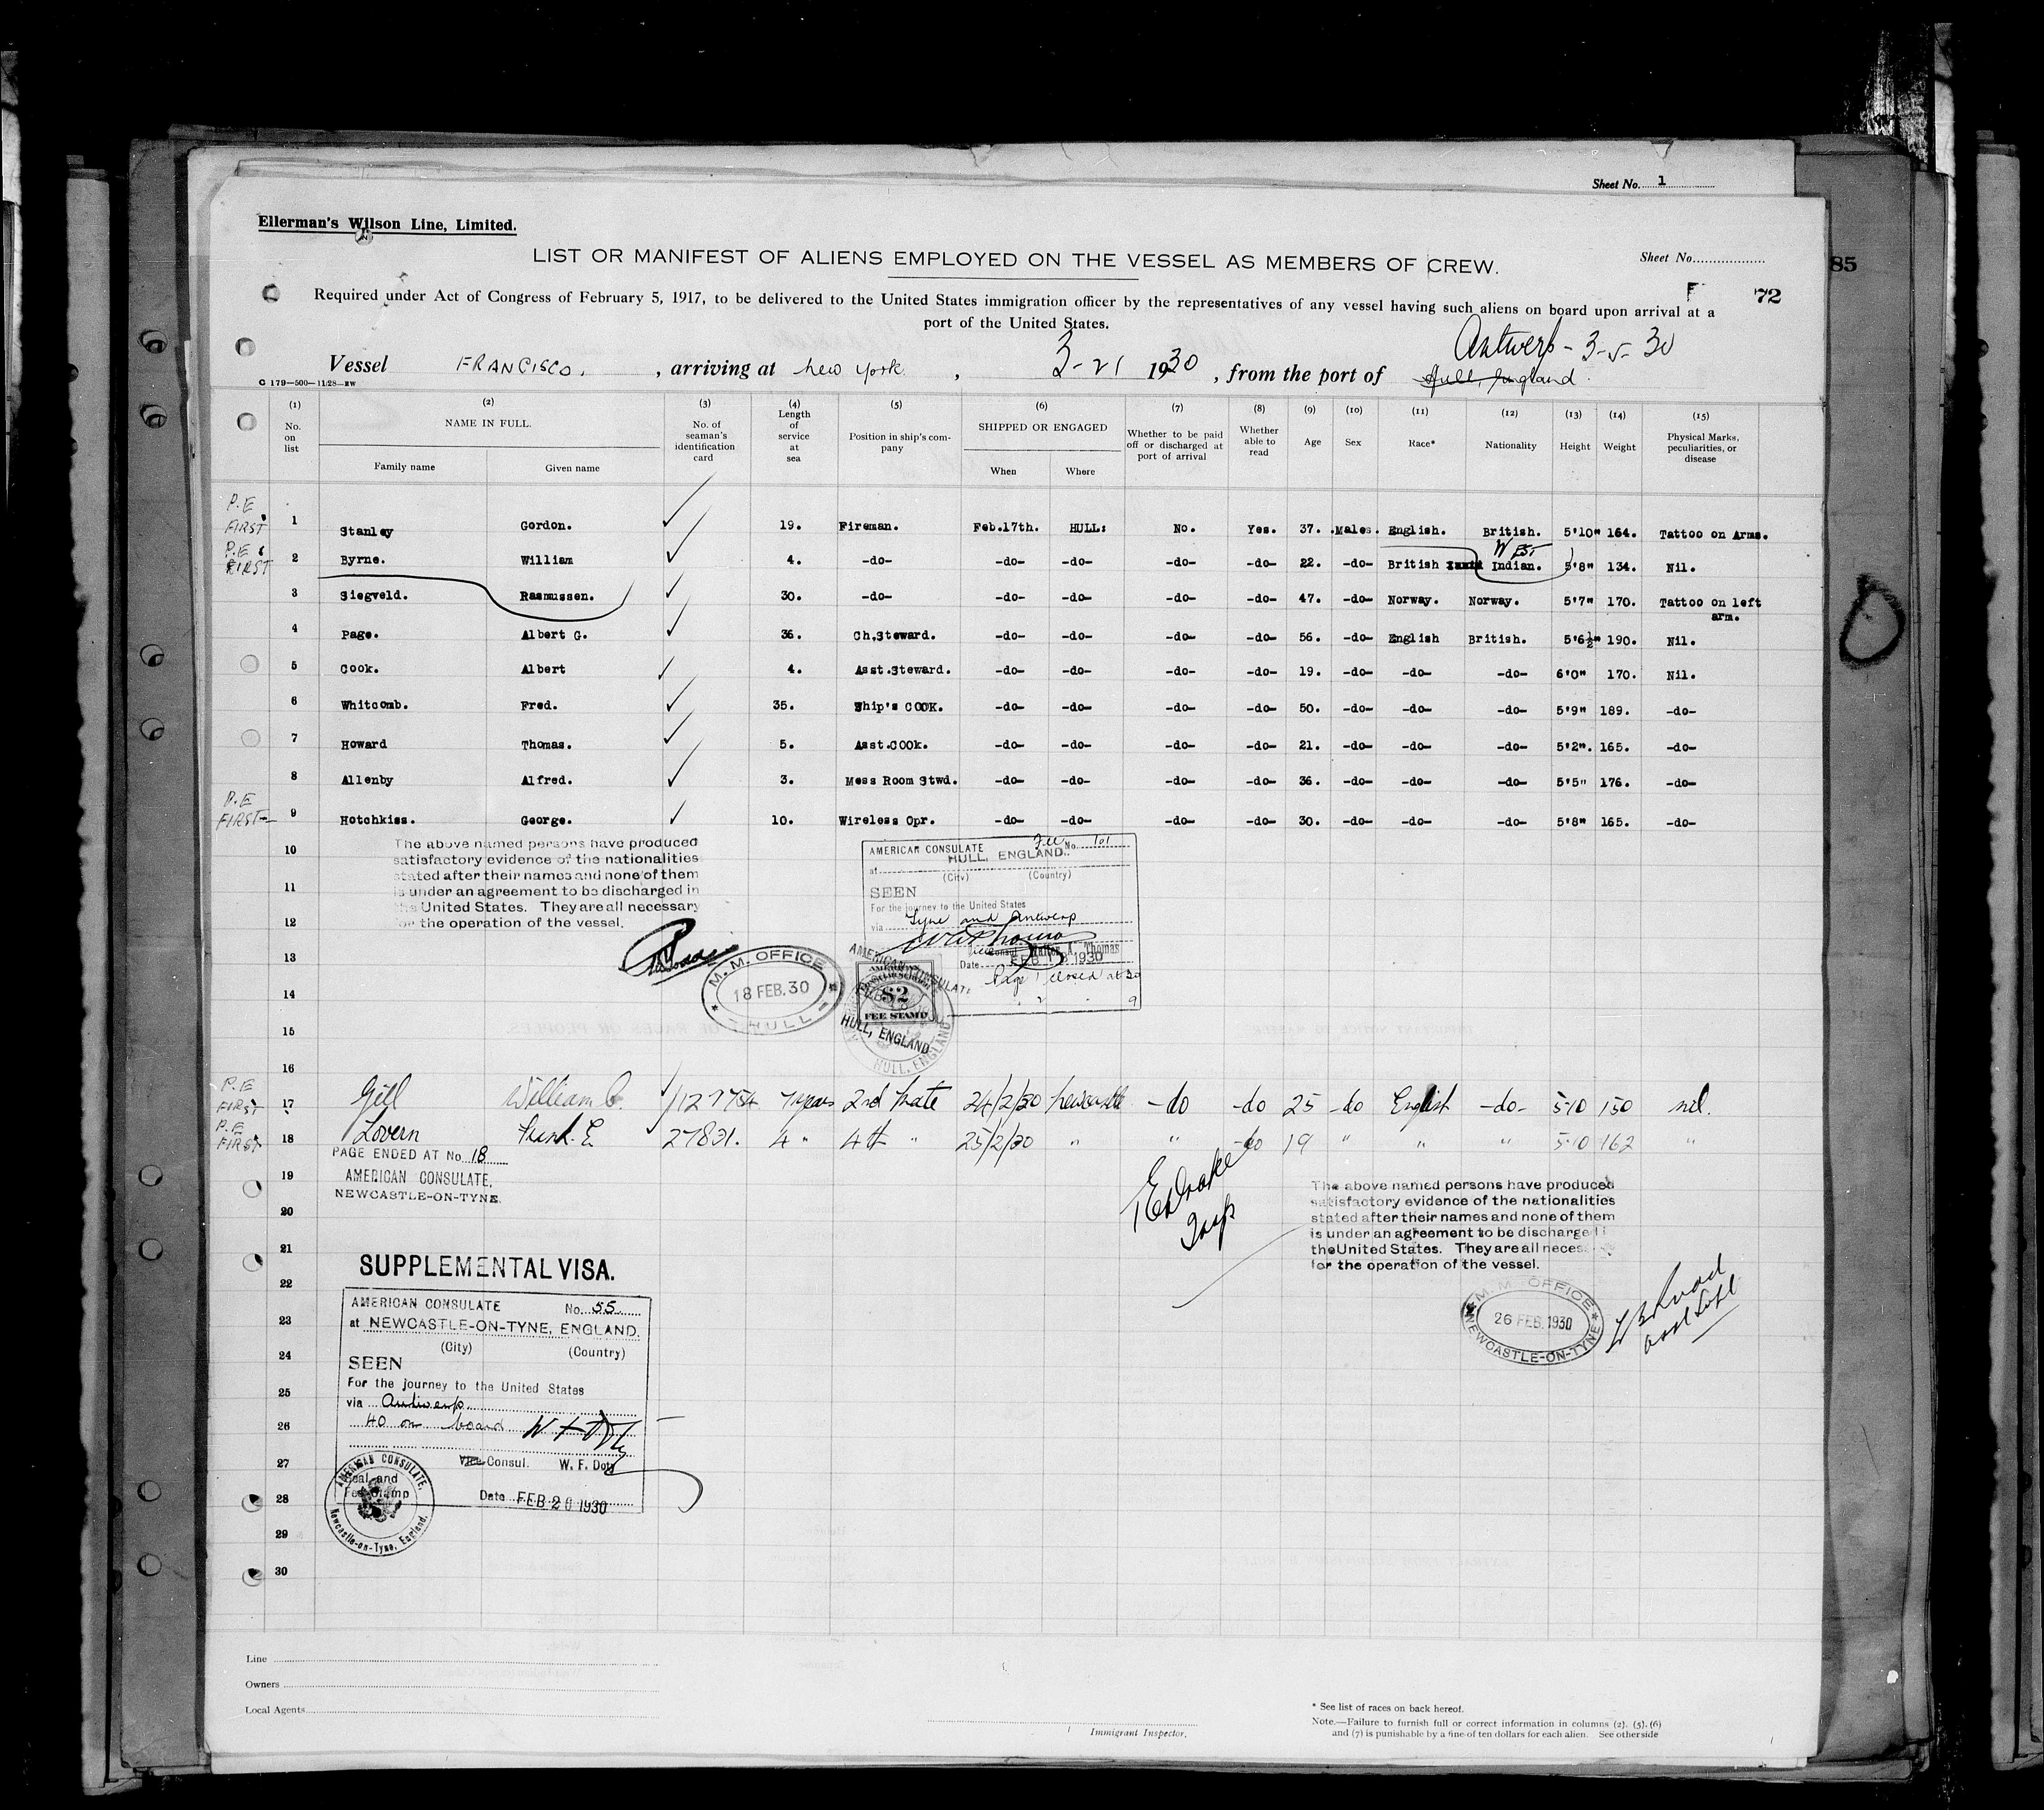 Sheet No. 1
85
Ellerman's Wilson Line, Limited.
LIST OR MANIFEST OF ALIENS EMPLOYED ON THE VESSEL AS MEMBERS OF CREW.
Sheet No.
72
Required under Act of Congress of February 5, 1917, to be delivered to the United States immigration officer by the representatives of any vessel having such aliens on board upon arrival at a
port of the United States.
Antwerp - 3-5-30
Vessel FRANCISCO. , arriving at New York , 3-21 1930 , from the port of Hull, England.
C 179—500—11/28—EW
(1) (2) (3) (4) (5) (6) (7) (8) (9) (10) (11) (12) (13) (14) (15)
No. on list NAME IN FULL. No. of seaman's identification card Length of service at sea Position in ship's company SHIPPED OR ENGAGED Whether to be paid off or discharged at port of arrival Whether able to read Age Sex Race* Nationality Height Weight Physical Marks, peculiarities, or disease
Family name Given name When Where
P.E FIRST 1 Stanley Gordon. 19. Fireman. Feb.17th. HULL: No. Yes. 37. Males. English. British. 5'10" 164. Tattoo on Arms.
P.E FIRST 2 Byrne. William 4. -do- -do- -do- -do- -do- 22. -do- British WEST Indian. 5'8" 134. Nil.
3 Siegveld. Rasmussen. 30. -do- -do- -do- -do- -do- 47. -do- Norway. Norway. 5'7" 170. Tattoo on left arm.
4 Page. Albert G. 36. Ch.Steward. -do- -do- -do- -do- 56. -do- English British. 5'6½" 190. Nil.
5 Cook. Albert 4. Asst.Steward. -do- -do- -do- -do- 19. -do- -do- -do- 6'0" 170. Nil.
6 Whitcomb. Fred. 35. Ship's COOK. -do- -do- -do- -do- 50. -do- -do- -do- 5'9" 189. -do-
7 Howard Thomas. 5. Asst.COOk. -do- -do- -do- -do- 21. -do- -do- -do- 5'2". 165. -do-
8 Allenby Alfred. 3. Mess Room Stwd. -do- -do- -do- -do- 36. -do- -do- -do- 5'5" 176. -do-
P.E FIRST 9 Hotchkiss. George. 10. Wireless Opr. -do- -do- -do- -do- 30. -do- -do- -do- 5'8" 165. -do-
10
11
12
13
14
15
16
The above named persons have produced
satisfactory evidence of the nationalities
stated after their names and none of them
is under an agreement to be discharged in
the United States. They are all necessary
for the operation of the vessel.
M. M. OFFICE
18 FEB. 30
HULL
AMERICAN CONSULATE No. 101
at HULL, ENGLAND.
(City) (Country)
SEEN
For the journey to the United States
via Tyne and Antwerp
Walter A. Thomas
Date FEB 18 1930
Page 1 closed at 30
" 2 " 9
AMERICAN CONSULATE
$2
FEE STAMP
HULL, ENGLAND
HULL, ENGLAND
P.E FIRST 17 Gill William C. 1127754 7 years 2nd Mate 24/2/30 Newcastle -do -do 25 -do English -do- 5-10 150 nil.
P.E FIRST 18 Lovern Frank. E 27831. 4 " 4th " 25/2/30 " " -do 19 " " " 5-10 162 "
PAGE ENDED AT No. 18
AMERICAN CONSULATE,
NEWCASTLE-ON-TYNE.
19
20
21
22
23
24
25
26
27
28
29
30
Insp
The above named persons have produced
satisfactory evidence of the nationalities
stated after their names and none of them
is under an agreement to be discharged i
the United States. They are all neces
for the operation of the vessel.
M. M. OFFICE
26 FEB. 1930
NEWCASTLE-ON-TYNE
SUPPLEMENTAL VISA.
AMERICAN CONSULATE No. 55
at NEWCASTLE-ON-TYNE, ENGLAND.
(City) (Country)
SEEN
For the journey to the United States
via Antwerp
40 on board
Vice Consul. W. F. Doty
Seal and
Fee Stamp
Date FEB 26 1930
AMERICAN CONSULATE,
Newcastle-on-Tyne, England.
Line
Owners
Local Agents
Immigrant Inspector.
* See list of races on back hereof.
Note.—Failure to furnish full or correct information in columns (2), (5), (6)
and (7) is punishable by a fine of ten dollars for each alien. See other side